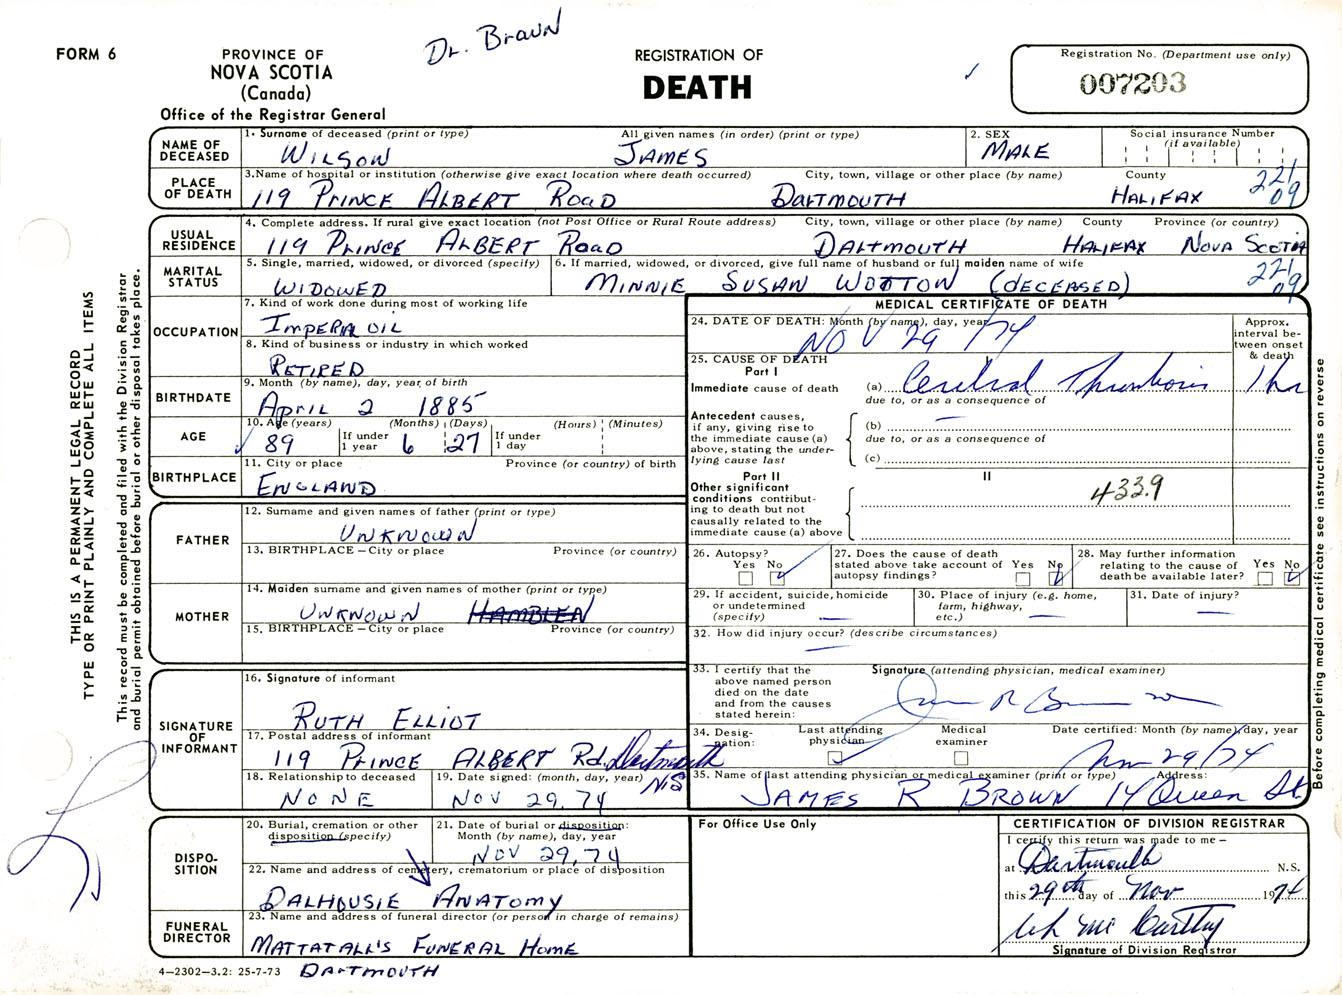 Dr. Brown
FORM 6
PROVINCE OF
NOVA SCOTIA
(Canada)
Office of the Registrar General
REGISTRATION OF
DEATH
Registration No. (Department use only)
007203
THIS IS A PERMANENT LEGAL RECORD
TYPE OR PRINT PLAINLY AND COMPLETE ALL ITEMS
This record must be completed and filed with the Division Registrar
and burial permit obtained before burial or other disposal takes place.
NAME OF
DECEASED
1. Surname of deceased (print or type) All given names (in order) (print or type)
WILSON JAMES
2. SEX
MALE
Social insurance Number
(if available)
PLACE
OF DEATH
3. Name of hospital or institution (otherwise give exact location where death occurred) City, town, village or other place (by name) County
119 PRINCE ALBERT ROAD DARTMOUTH HALIFAX
221
09
USUAL
RESIDENCE
4. Complete address. If rural give exact location (not Post Office or Rural Route address) City, town, village or other place (by name) County Province (or country)
119 PRINCE ALBERT ROAD DARTMOUTH HALIFAX NOVA SCOTIA
MARITAL
STATUS
5. Single, married, widowed, or divorced (specify)
WIDOWED
6. If married, widowed, or divorced, give full name of husband or full maiden name of wife
MINNIE SUSAN WOTTON (DECEASED)
221
09
OCCUPATION
7. Kind of work done during most of working life
IMPERIAL OIL
8. Kind of business or industry in which worked
RETIRED
BIRTHDATE
9. Month (by name), day, year of birth
APRIL 2 1885
AGE
10. Age (years) (Months) (Days) (Hours) (Minutes)
89 If under 1 year 6 27 If under 1 day
BIRTHPLACE
11. City or place Province (or country) of birth
ENGLAND
FATHER
12. Surname and given names of father (print or type)
UNKNOWN
13. BIRTHPLACE – City or place Province (or country)
MOTHER
14. Maiden surname and given names of mother (print or type)
UNKNOWN HAMBLEN
15. BIRTHPLACE – City or place Province (or country)
SIGNATURE
OF
INFORMANT
16. Signature of informant
RUTH ELLIOT
17. Postal address of informant
119 PRINCE ALBERT Rd. Dartmouth
NS
18. Relationship to deceased
NONE
19. Date signed: (month, day, year)
NOV 29, 74
DISPO-
SITION
20. Burial, cremation or other
disposition (specify)
21. Date of burial or disposition:
Month (by name), day, year
NOV 29, 74
22. Name and address of cemetery, crematorium or place of disposition
DALHOUSIE ANATOMY
FUNERAL
DIRECTOR
23. Name and address of funeral director (or person in charge of remains)
MATTATALL'S FUNERAL HOME
DARTMOUTH
4–2302–3.2: 25-7-73
MEDICAL CERTIFICATE OF DEATH
24. DATE OF DEATH: Month (by name), day, year
NOV 29 /74
Approx.
interval be-
tween onset
& death
25. CAUSE OF DEATH
Part I
I
Immediate cause of death (a) Cerebral Thrombosis 1 hr
due to, or as a consequence of
Antecedent causes,
if any, giving rise to
the immediate cause (a)
above, stating the under-
lying cause last
(b)
due to, or as a consequence of
(c)
Part II
II
Other significant
conditions contribut-
ing to death but not
causally related to the
immediate cause (a) above
433.9
26. Autopsy?
Yes No
27. Does the cause of death
stated above take account of
autopsy findings?
Yes No
28. May further information
relating to the cause of
death be available later?
Yes No
29. If accident, suicide, homicide
or undetermined
(specify)
30. Place of injury (e.g. home,
farm, highway,
etc.)
31. Date of injury?
32. How did injury occur? (describe circumstances)
33. I certify that the
above named person
died on the date
and from the causes
stated herein:
Signature (attending physician, medical examiner)
James R Brown
34. Desig-
nation:
Last attending
physician
Medical
examiner
Date certified: Month (by name), day, year
Nov 29/74
35. Name of last attending physician or medical examiner (print or type) Address:
JAMES R BROWN 14 Queen St
Before completing medical certificate see instructions on reverse
For Office Use Only
CERTIFICATION OF DIVISION REGISTRAR
I certify this return was made to me –
at Dartmouth N.S.
this 29th day of Nov 1974
Signature of Division Registrar